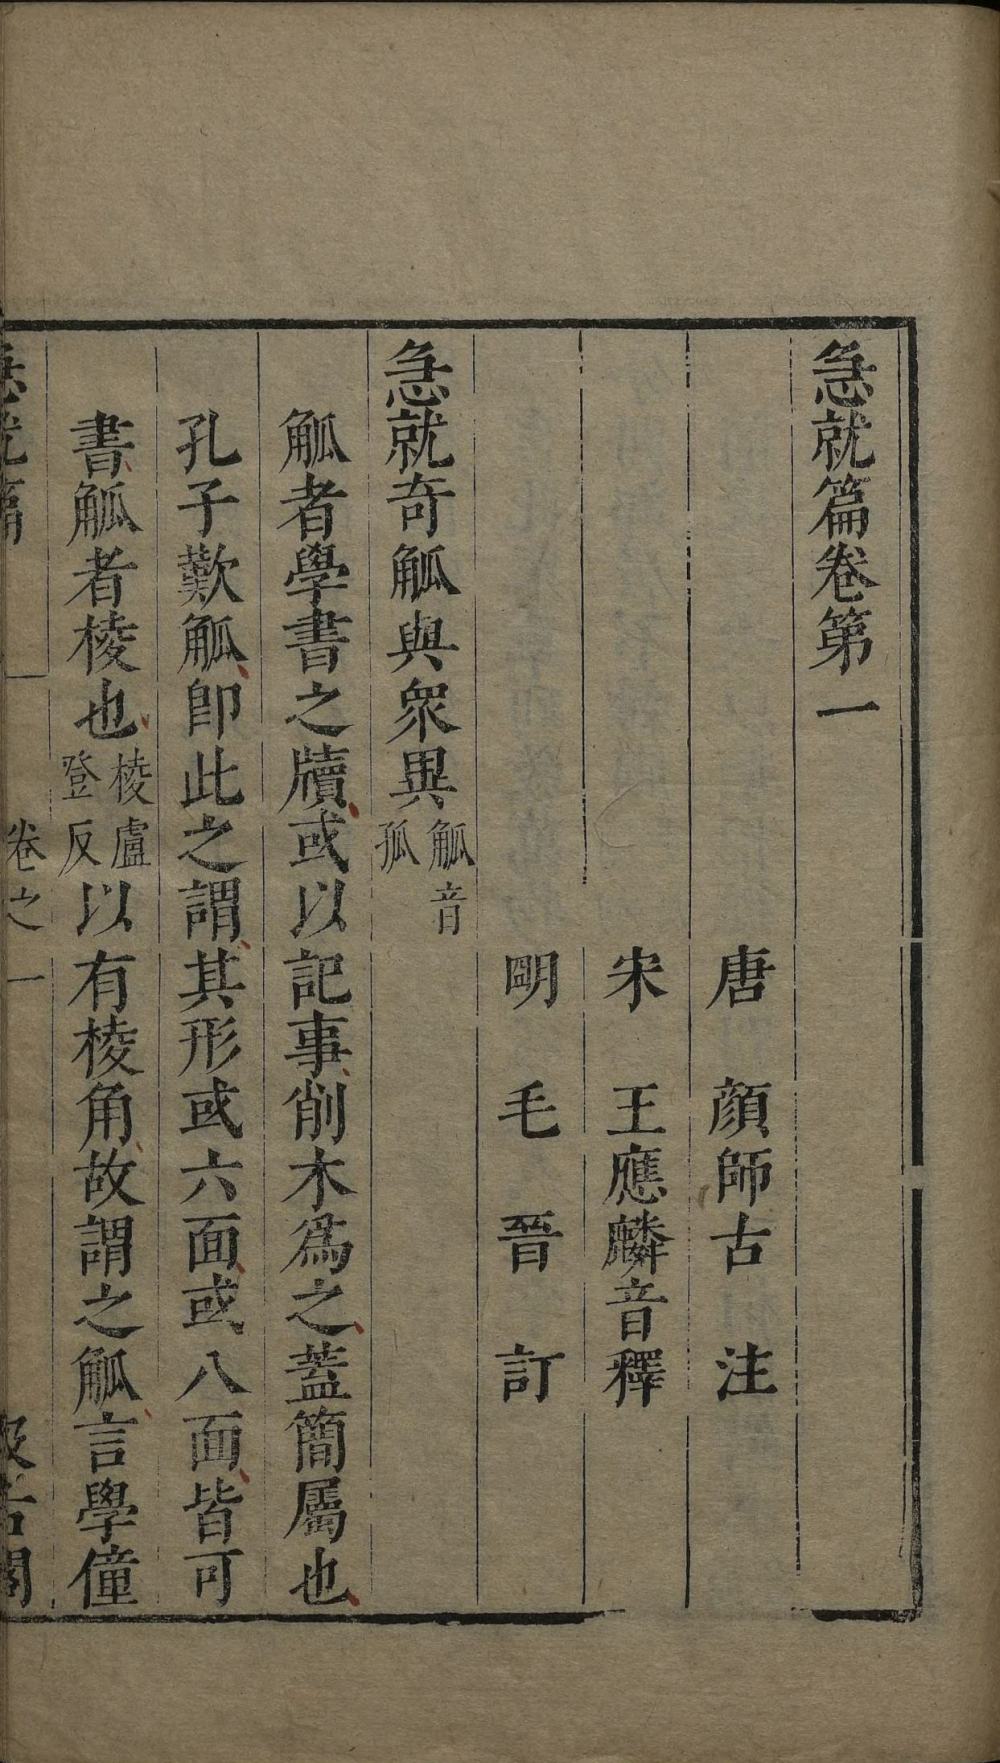 急就篇卷第一
唐 顏師古 注
宋 王應麟音釋
明 毛 晉 訂
急就奇觚與衆異觚音孤
觚者學書之牘或以記事削木爲之蓋簡屬也
孔子歎觚卽此之謂其形或六面或八面皆可
書觚者棱也棱盧登反以有棱角故謂之觚言學僮
急就篇 卷之一 汲古閣